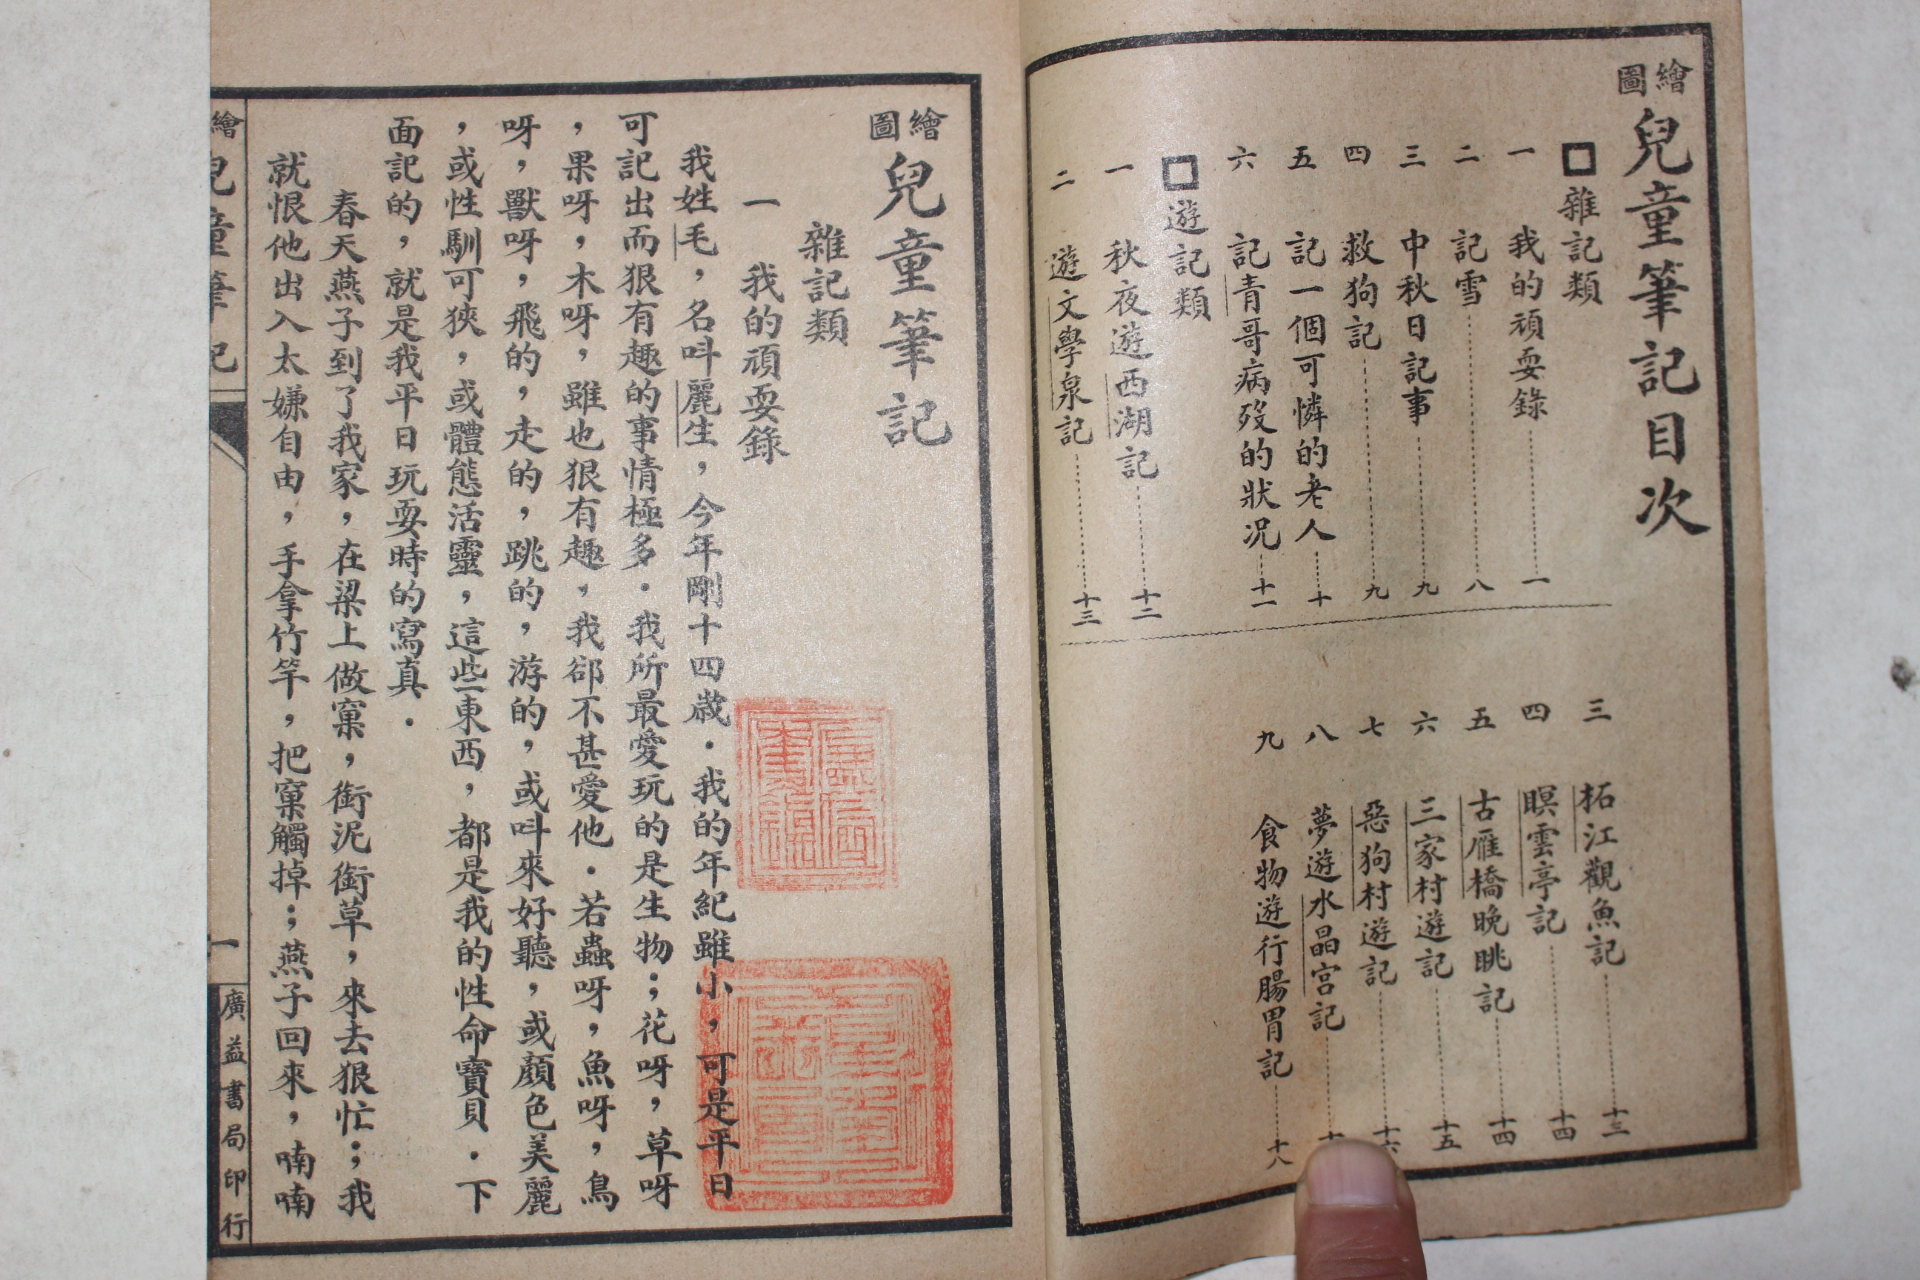 繪圖兒童筆記目次
雜記類
一 我的頑耍錄 一
二 記雪 八
三 中秋日記事 九
四 救狗記 九
五 記一個可憐的老人 十
六 記青哥病歿的狀况 十一
遊記類
一 秋夜遊西湖記 十二
二 遊文學泉記 十三
三 柘江觀魚記 十三
四 瞑雲亭記 十四
五 古雁橋晚眺記 十四
六 三家村遊記 十五
七 惡狗村遊記 十六
八 夢遊水晶宮記
九 食物遊行腸胃記 十八
繪圖兒童筆記
雜記類
一 我的頑耍錄
我姓毛，名呌麗生，今年剛十四歲．我的年紀雖小，可是平日
可記出而狠有趣的事情極多．我所最愛玩的是生物；花呀，草呀
，果呀，木呀，雖也狠有趣，我郤不甚愛他．若蟲呀，魚呀，鳥
呀，獸呀，飛的，走的，跳的，游的，或呌來好聽，或顏色美麗
，或性馴可狹，或體態活靈，這些東西，都是我的性命寶貝．下
面記的，就是我平日玩耍時的寫真．
春天燕子到了我家，在梁上做窠，銜泥銜草，來去狠忙；我
就恨他出入太嫌自由，手拿竹竿，把窠觸掉；燕子回來，喃喃
繪兒童筆記
一
廣益書局印行